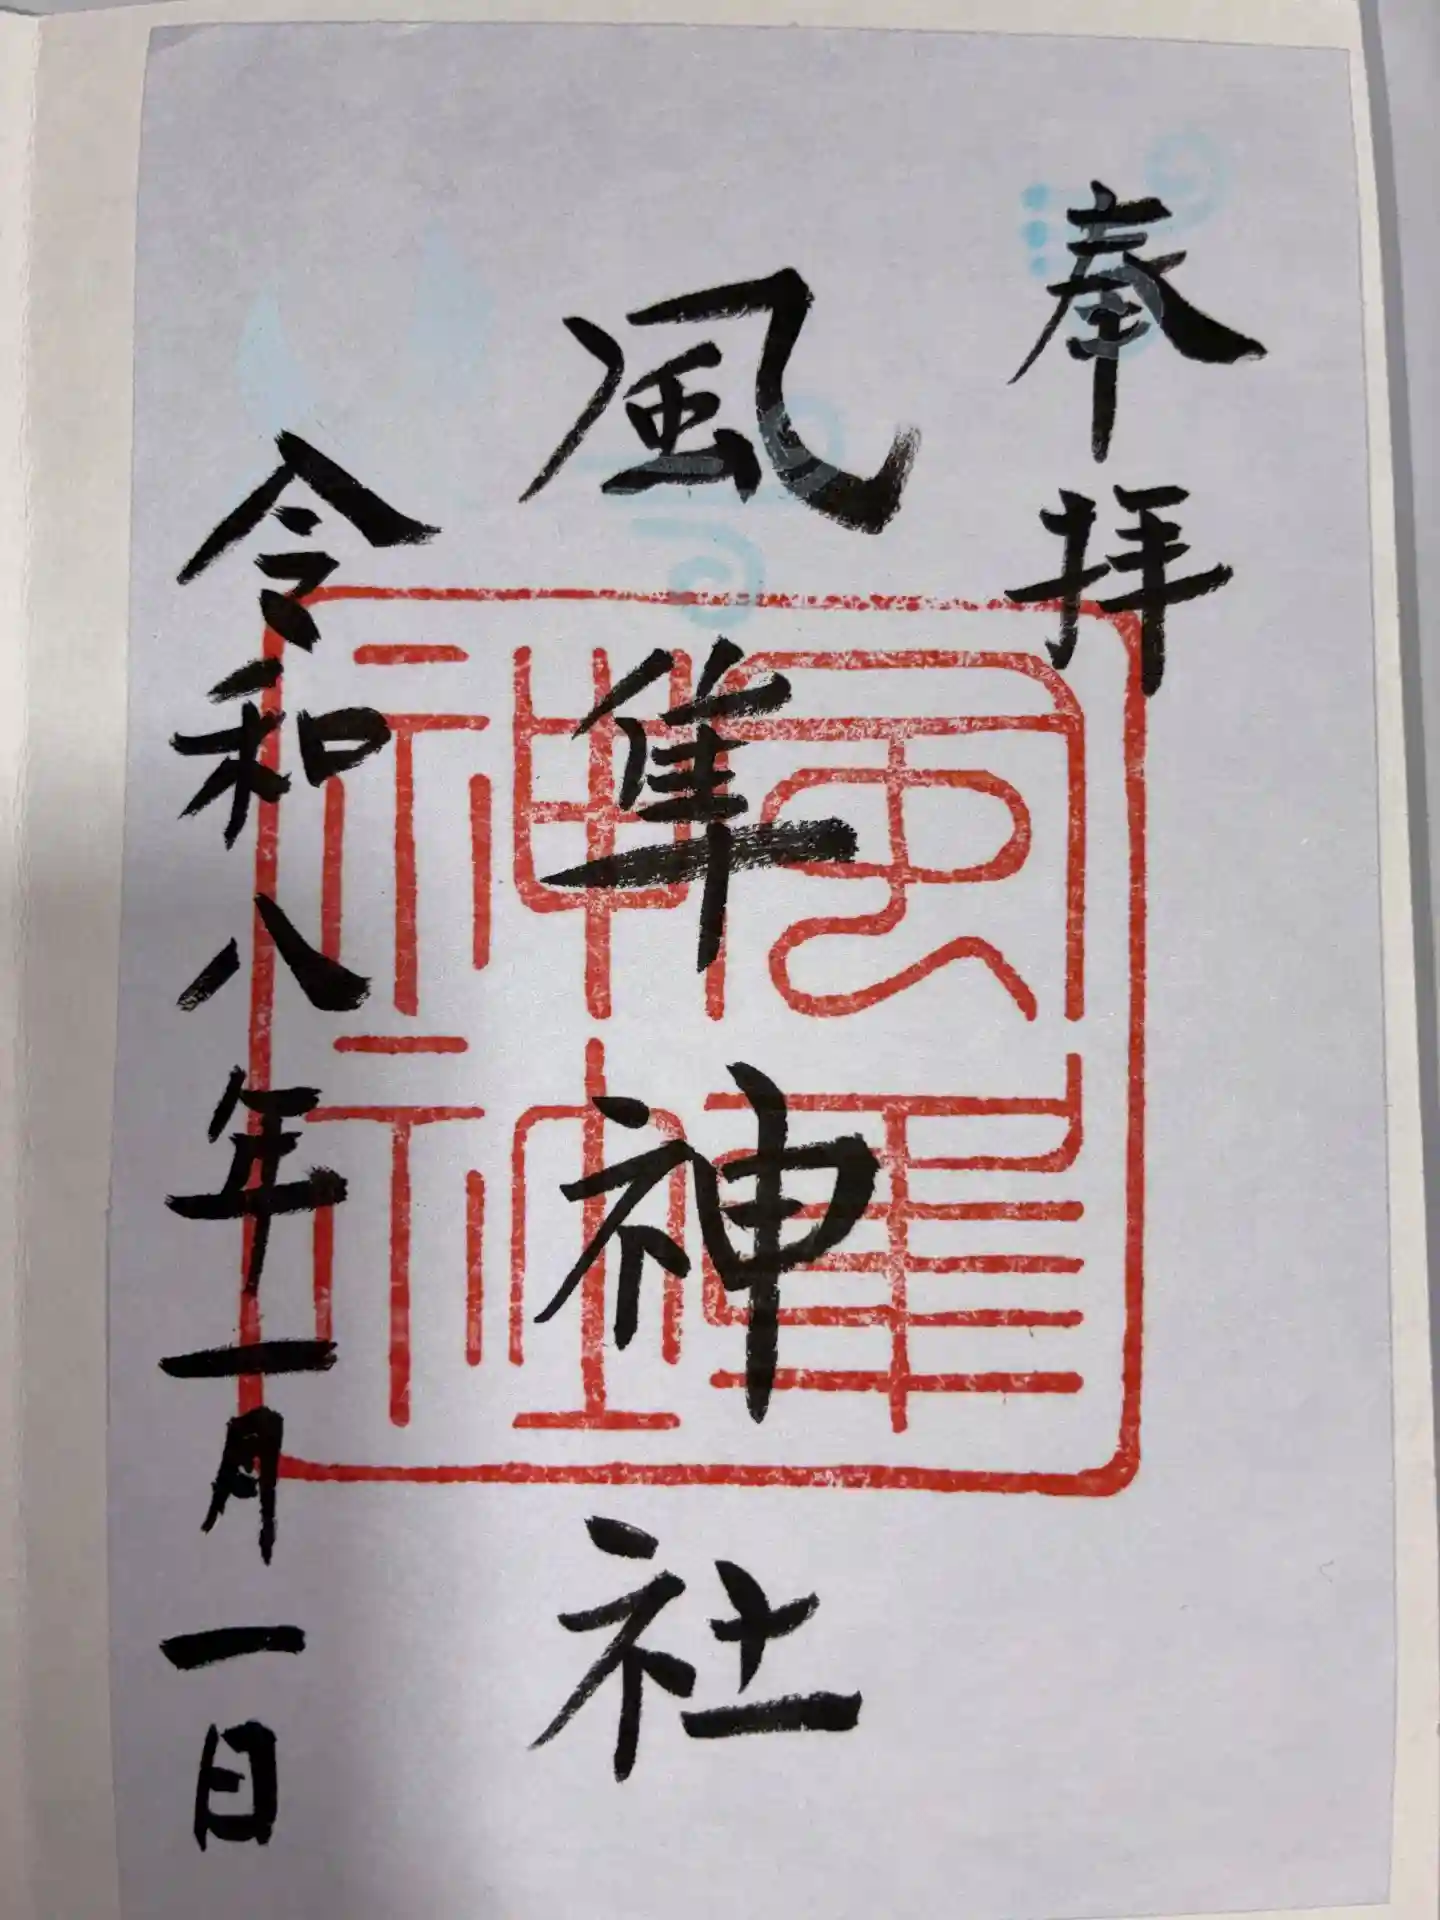 奉拝
風隼神社
風隼神社
令和八年一月一日